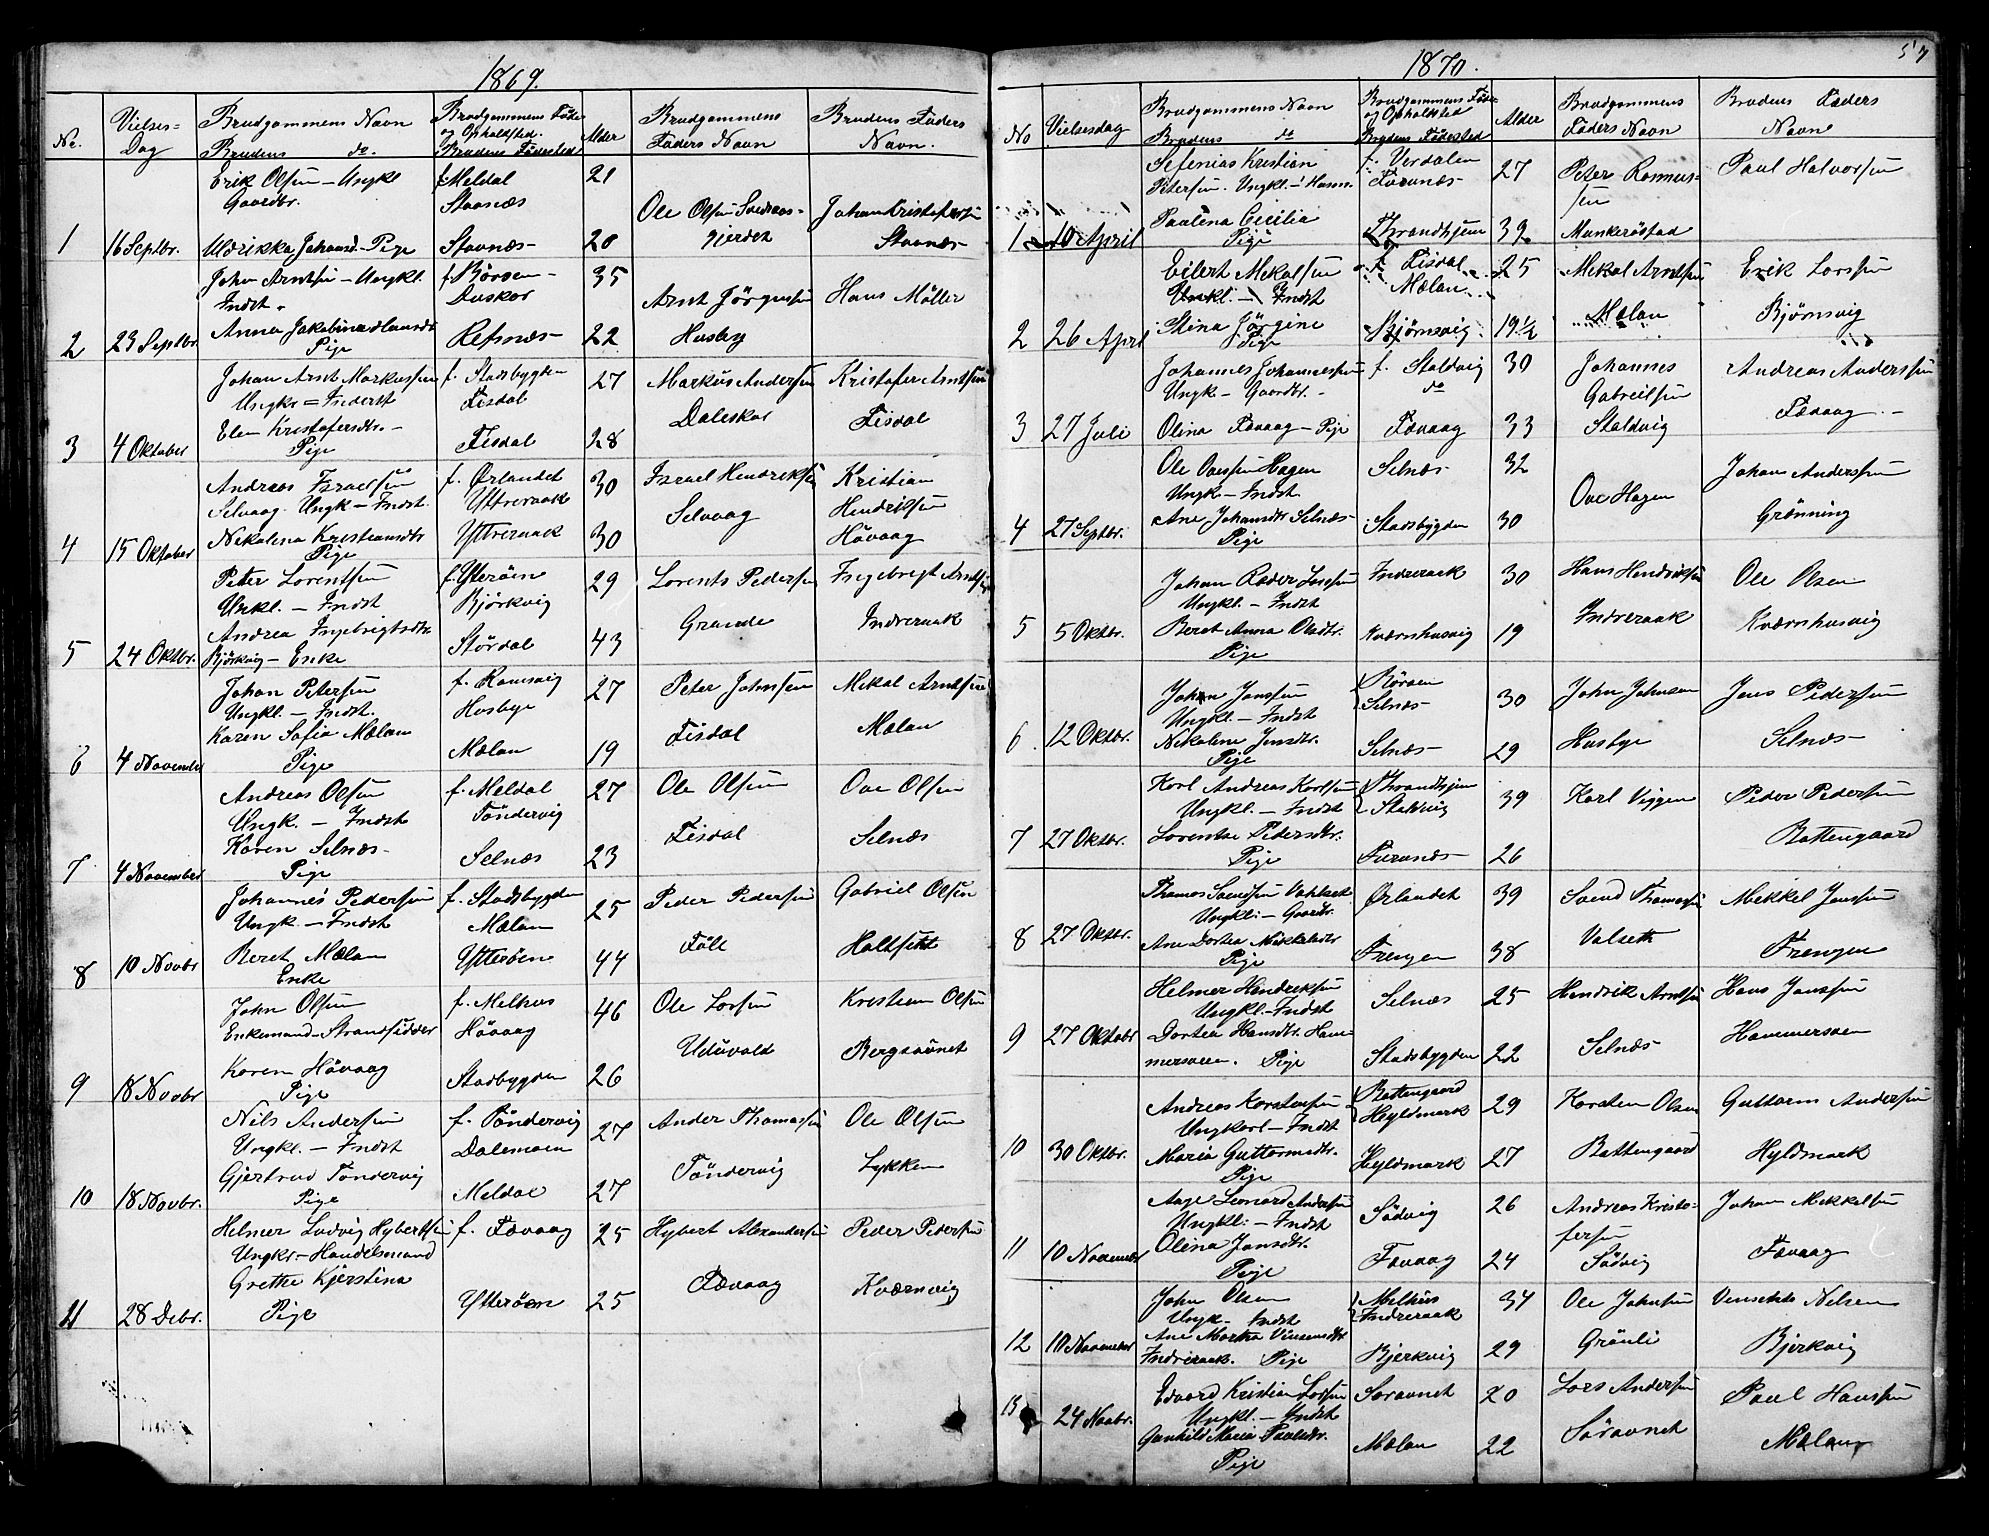 1869.
Nr.
Vielses-
Dag
Brudgommens Navn
Brudens do.
Brudgommens Føde
og Opholdsted.
Brudens Fødested
Alder
Brudgommens
Faders Navn
Brudens Faders
Navn.
1
16 Septbr.
Erik Olsen - Ungkl
Gaardbr.
Uldrikka Johansd. - Pige
f. Meldal
Stavnæs
Stavnæs -
21
20
Ole Olsen
gjerdet
Johan Kristofersen
Stavnæs -
2
23 Septbr.
John Arntsen - Ungkl.
Indst.
Anna Jakobine Hansdr
Pige
f. Børsen -
Buskar
Refsnæs -
35
22
Arnt Jörgensen
Husby
Hans Möller
3
4 Oktober
Johan Arnt Markussen
Ungkr = Inderst
Elen Kristofersdtr. -
Pige
f. Stadsbygden
Fisdal
Fisdal
27
28
Markus Andersen
Daleskar
Kristofer Arntsen
Fisdal
4
15 Oktober
Andreas Israelsen
Selvaag. Ungk - Indst.
Nekolena Kristiansdtr
Pige
f. Ørlandet
Yttreraak
Yttreraak
30
30
Israel Hendriksen
Selvaag
Kristian
Hendriksen
Hövaag
5
24 Oktbr.
Peter Lorentsen
Unkl. - Indst
Andrea Ingebrigtsdtr.
Bjørkvig - Enke
f. Ytterøen
Bjørkvig
Stördal
29
43
Lorents Pedersen
Grande
Ingebrigt Arntsen
Indreraak
6
4 November
Johan Petersen
Ungkl. - Indst.
Karen Sofia Mælan
Pige
f. Ramsvig
Husbye
Mælan
27
19
Peter Johnsen
Fisdal
Mekal Arntsen
Mælan
7
4 November
Andreas Olsen
Ungk. - Indst
Karen Selnæs -
Pige
f. Meldal
Töndervig
Selnæs
27
23
Ole Olsen
Fisdal
Ove Olsen
Selnæs
8
10 Novbr
Johannes Pedersen
Ungk - Indst
Beret Mælan
Enke
f. Stadsbygden
Mælan
Ytterøen
25
44
Peder Pedersen
Föll
Gabriel Olsen
Holtsett
9
18 Novbr
John Olsen
Enkemand - Strandsidder
Karen Hövaag
Pige
f. Melhus
Hövaag
Stadbygden
46
26
Ole Larsen
Udüvold
Kristian Olsen
Bergsövnet
10
18 Novbr.
Nils Andersen
Ungkl. - Indst
Gjertrud Töndervig
Pige
f. Töndervig
Dalemoen
Meldal
27
27
Ander Thomassen
Töndervig
Ole Olsen
Lykken
11
28 Debr.
Helmer Ludvig Hybertsen
Ungkl. - Handelsmand
Grethe Kjerstina
Pige
f. Fævaag
Ytterøen
25
25
Hybert Alexandersen
Fævaag
Peder Pedersen
Kværnvig
1870.
57
No
Vielsesdag
Brudgommens Navn
Brudens do
Brudgommens Føde
og Opholdsted
Brudens Fødested
Alder
Brudgommens
Faders Navn
Brudens Faders
Navn
1
10 April
Sefenias Kristian
Petersen. Ungkl. - Husm.
Paulina Cecilia
Pige
f. Verdalen
Furunæs -
Thrandhjem
27
39
Peter Rasmus-
sen
Munkerøstad
Paul Halvorsen
2
26 April
Eilert Mekalsen
Unkl. - Indst
Stina Jörgine
Pige
f. Fisdal
Mælan
Bjørnsvig
25
19 1/2
Mekal Arntsen
Mælan
Erik Larsen
Bjørnsvig
3
27 Juli
Johannes Johannessen
Ungk - Gaardbr. -
Olina Fævaag - Pige
f. Staldvig
do
Fævaag
30
33
Johannes
Gabrielsen
Staldvig
Andreas Andersen
Fævaag -
4
27 Septbr.
Ole Ovesen Hagen
Ungk - Indst.
Ane Johansdtr Selnæs -
Pige
Selnæs -
Stadsbygden
32
30
Ove Hagen
Johan Andersen
Grönning
5
5 Oktbr.
Johan Ræder
Ungkl. - Indst
Beret Anna Olsdtr.
Pige
Indreraak
Kværnhusvig
30
19
Hans Hendriksen
Indreraak
Ole Olsen
Kværnhusvig
6
12 Oktbr.
Johan Jonssen
Ungkl. - Indst
Nikoline Jensdtr.
Pige
Börsen
Selnæs -
Selnæs -
30
29
John Johnsen
Husbye
Jens Pedersen
Selnæs -
7
27 Oktbr.
Karl Andreas Karlsen
Ungkl. - Indst
Lorentse Pedersdtr.
Pige
Thrandhjem
Staldvig
Furunæs -
39
26
Karl Viggen
Peder Pedersen
Battengaard
8
27 Oktbr.
Thomas Svendsen
Ungkl: - Gaardbr.
Ane Dortea
Pige
Ørlandet
Frengen
39
38
Svend Thomassen
Valseth
Mekkel Jenssen
Frengen
9
27 Oktobr
Helmer Hendriksen
Ungkl. - Indst
Dortea Hansdtr. Ham-
mersoien. Pige
Selnæs
Stadsbygden
25
22
Hendrik Arntsen
Selnæs -
Hans Jenssen
Hammersoen
10
30 Oktbr.
Andreas Karstensen
Ungkarl - Indst
Maria Guttormsdtr.
Pige
Battengaard
Hyldmark
Hyldmark
29
27
Karsten Olsen
Battengaard
Guttorm Andersen
Hyldmark
11
10 November
Aage Leonard Andersen
Ungkl: - Indst
Olina Jonsdtr.
Pige
Södvig
Fævaag
26
24
Andreas Kristo-
fersen
Södvig
Johan Mekkelsen
Fævaag
12
10 November
John Olsen
Ungk - Indst
Ane Martha Vinsensdtr
Indreraak. Pige
Melhus
Indreraak
Bjerkvig
34
29
Ole Johnsen
Grönli
Nelsen
Bjerkvig
13
24 Novbr.
Edvard Kristian Larsen
Ungkl. - Indst
Gunhild Maria Paulsdtr.
Pige
Soravnet
Mælan
20
22
Lars Andersen
Söravnet
Paul Hansen
Mælan